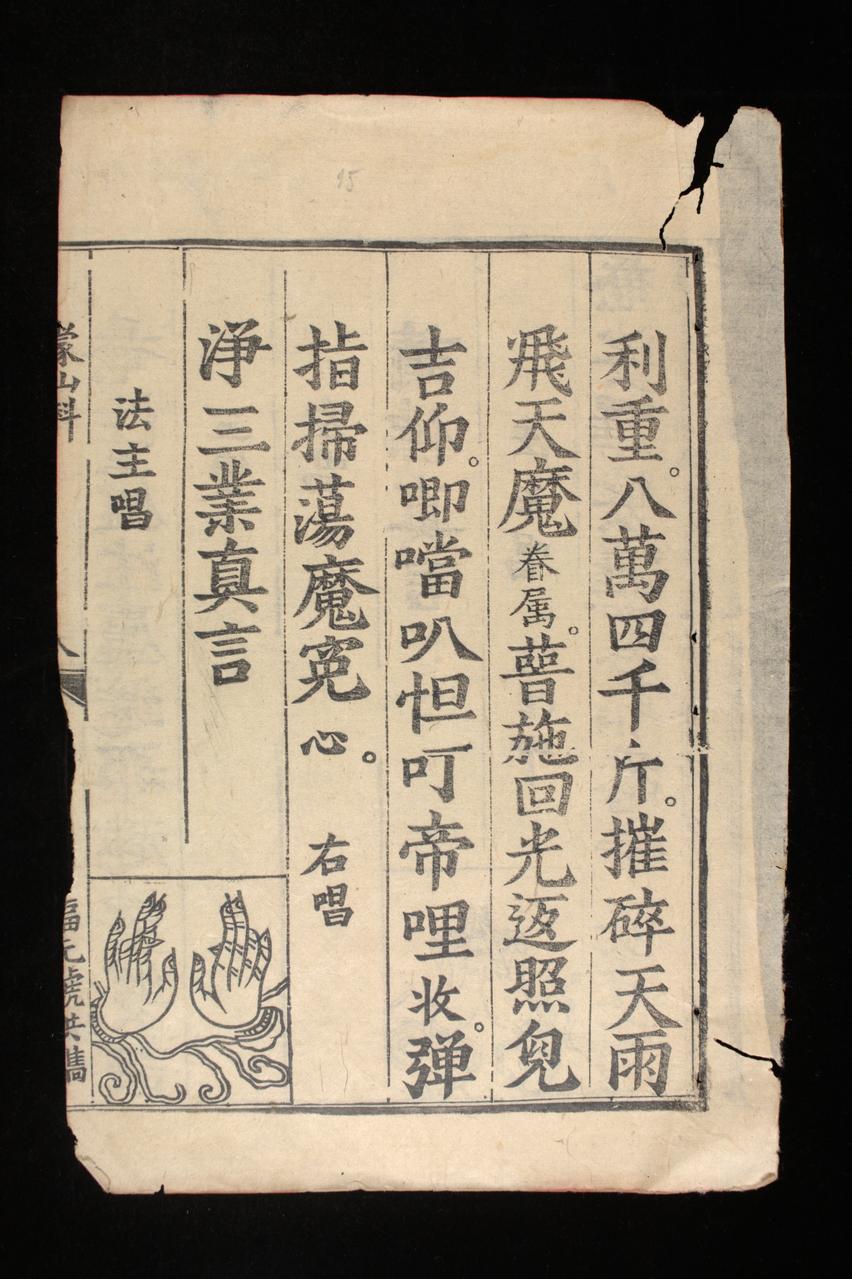 利重。八萬四千斤。摧碎天雨
飛天魔眷属。普施回光返照皃
吉仰。唧噹叭怛叮帝哩收。弹
指掃蕩魔寃心。 右唱
浄三業真言
法主唱
蒙山科 八 福元號
95